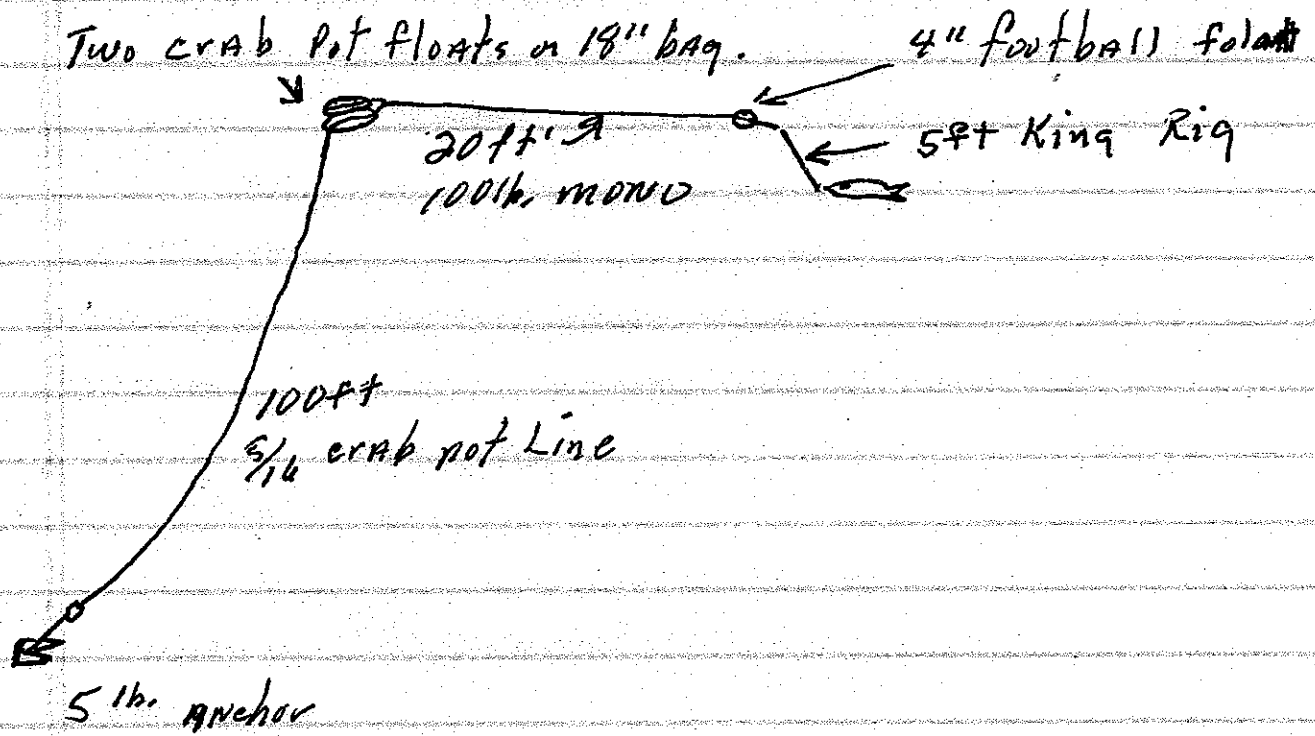 Two crab Pot floats or 18" bag.
4" football folat
20 ft
100 lb. mono
5 ft King Rig
100 ft
5/16 crab pot Line
5 lb. Anchor